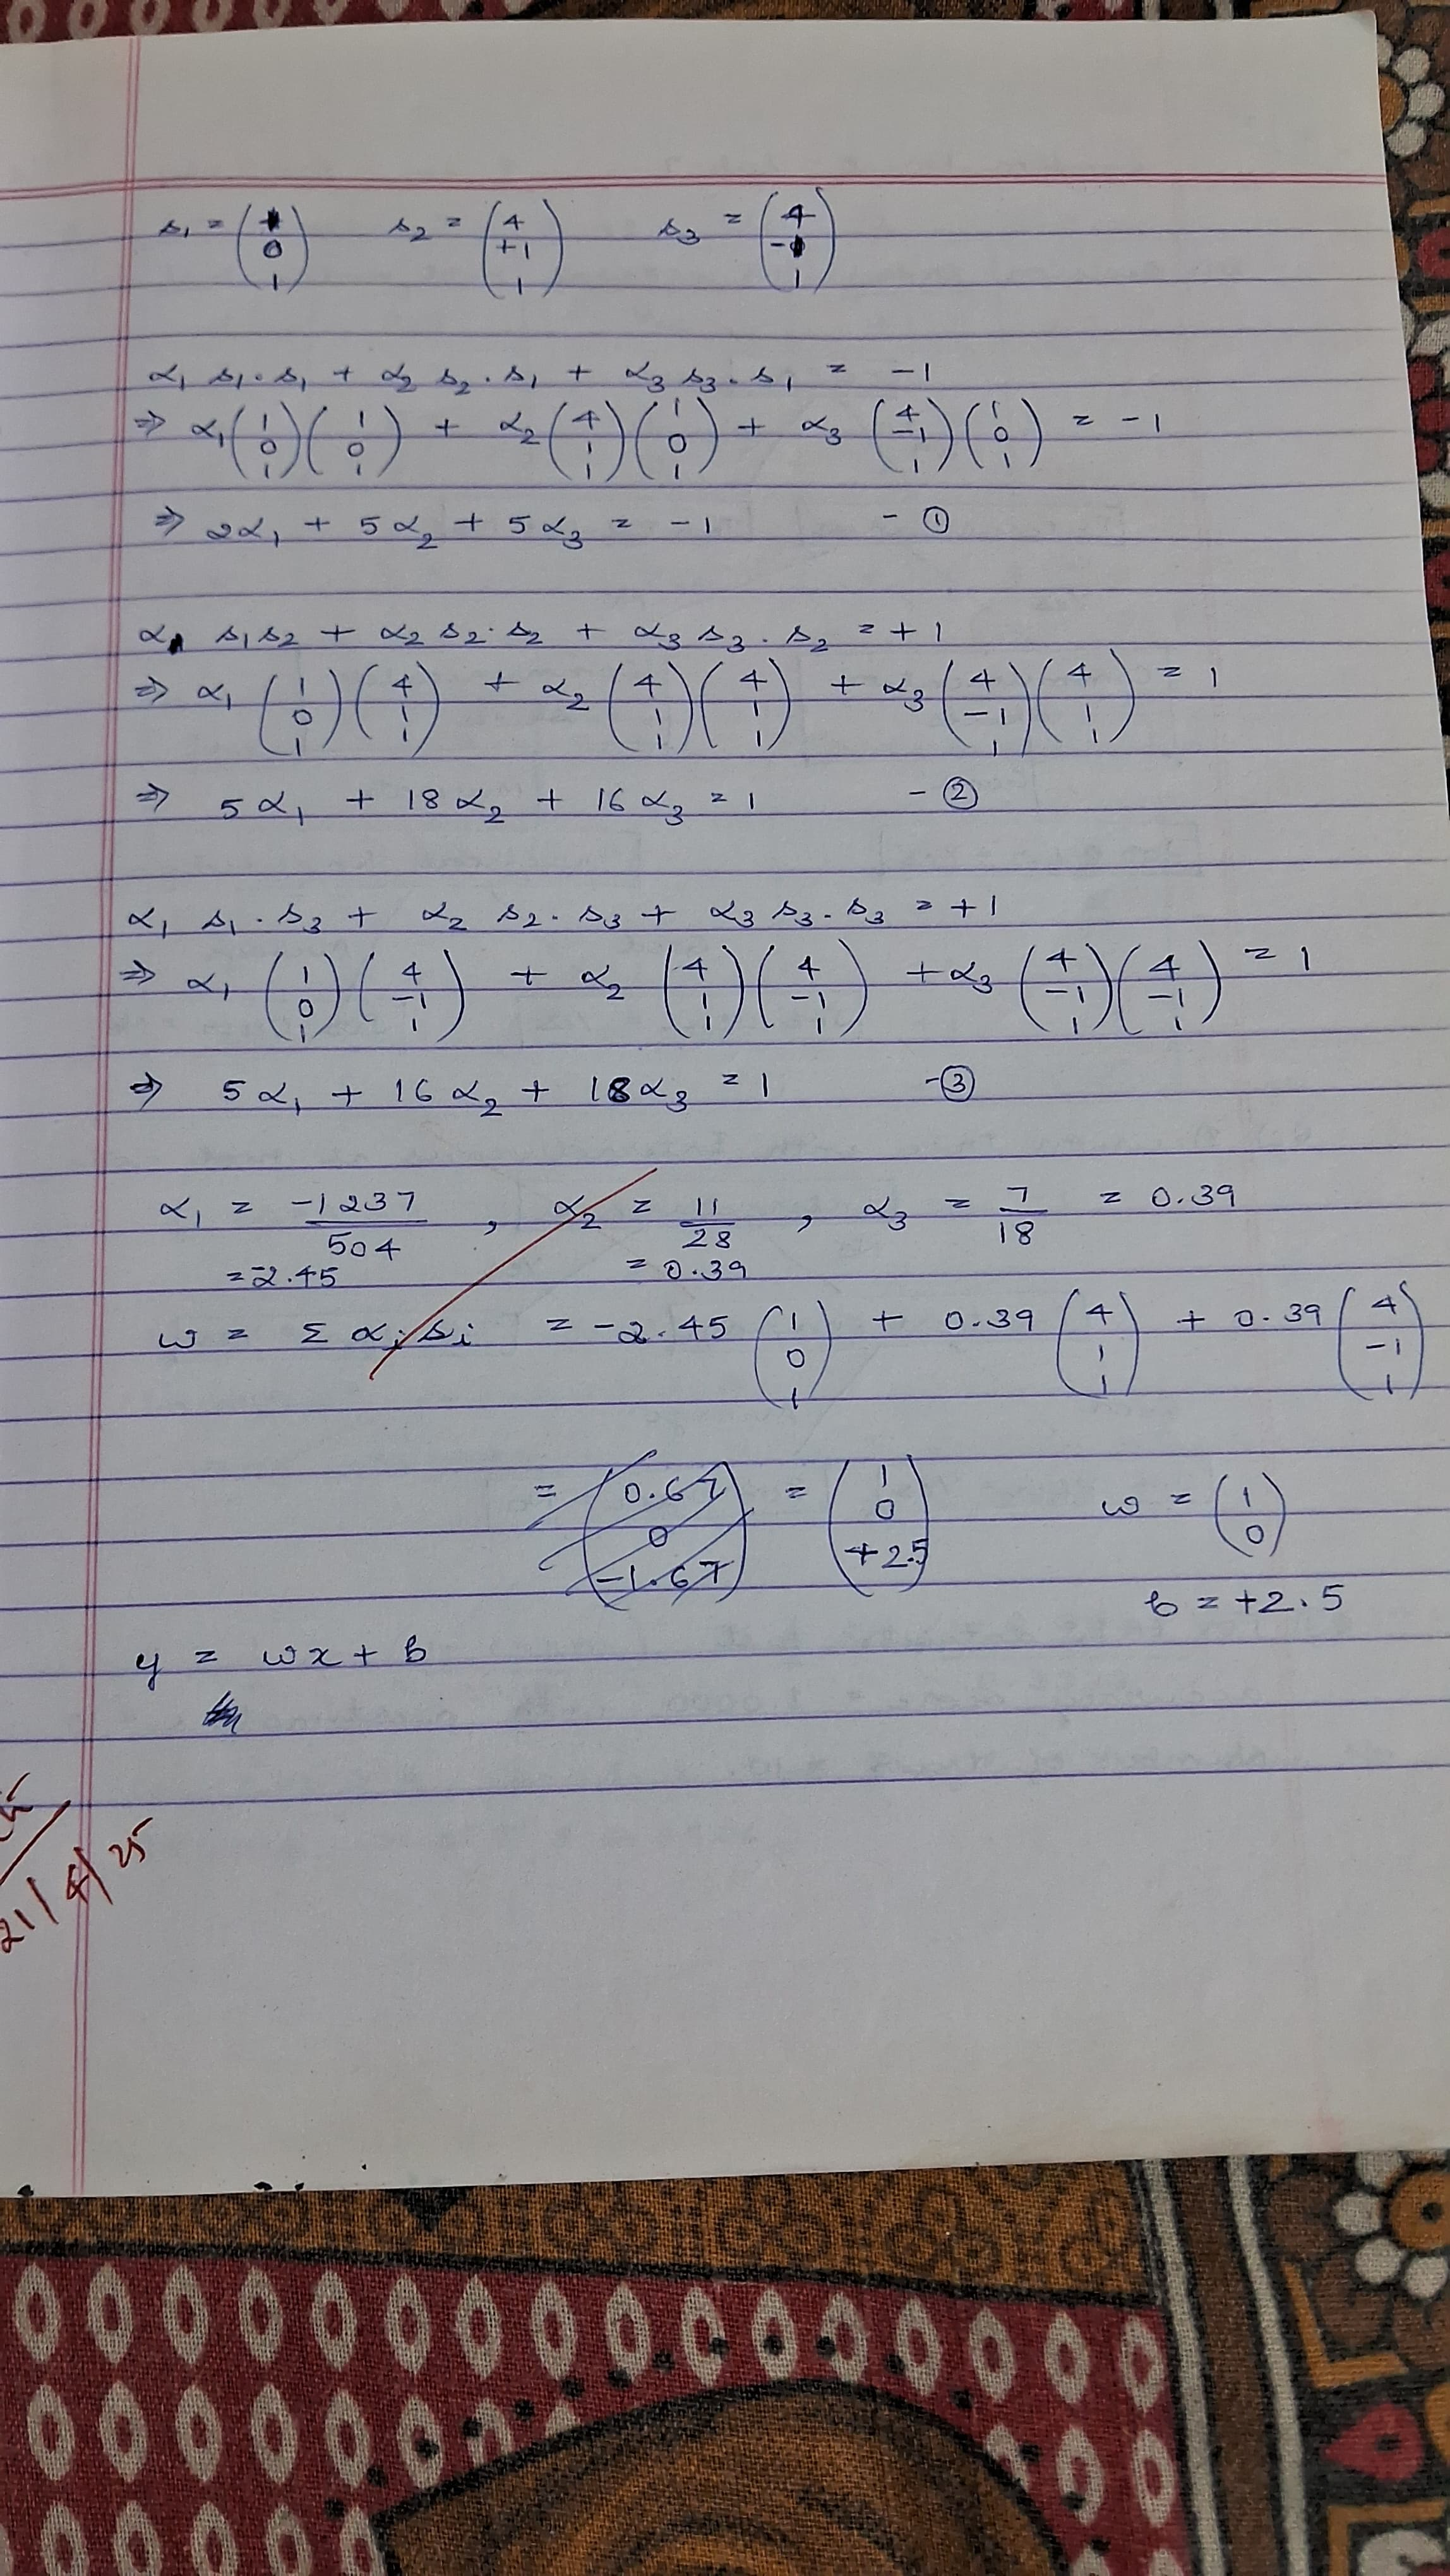 s₁ = (1 0 1) s₂ = (4 +1 1) s₃ = (4 -1 1)
α₁ s₁.s₁ + α₂ s₂.s₁ + α₃ s₃.s₁ = -1
⇒ α₁ (1 0 1)(1 0 1) + α₂ (4 1 1)(1 0 1) + α₃ (4 -1 1)(1 0 1) = -1
⇒ 2α₁ + 5α₂ + 5α₃ = -1 - ①
α₁ s₁s₂ + α₂ s₂.s₂ + α₃ s₃.s₂ = +1
⇒ α₁ (1 0 1)(4 1 1) + α₂ (4 1 1)(4 1 1) + α₃ (4 -1 1)(4 1 1) = 1
⇒ 5α₁ + 18α₂ + 16α₃ = 1 - ②
α₁ s₁.s₃ + α₂ s₂.s₃ + α₃ s₃.s₃ = +1
⇒ α₁ (1 0 1)(4 -1 1) + α₂ (4 1 1)(4 -1 1) + α₃ (4 -1 1)(4 -1 1) = 1
⇒ 5α₁ + 16α₂ + 18α₃ = 1 - ③
α₁ = -1237/504 , α₂ = 11/28 , α₃ = 7/18 = 0.39
= -2.45 = 0.39
w = Σ αᵢ sᵢ = -2.45 (1 0 1) + 0.39 (4 1 1) + 0.39 (4 -1 1)
= (0.67 0 -1.67) = (1 0 +2.5) w = (1 0)
b = +2.5
y = wx + b
21/4/25